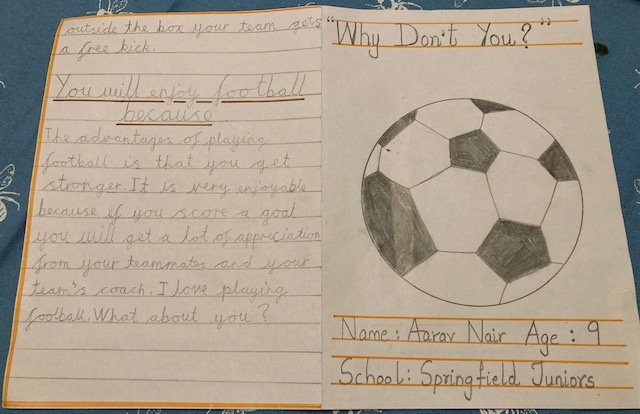 outside the box your team gets
a free kick.
You will enjoy football
because
The advantages of playing
football is that you get
stronger. It is very enjoyable
because if you score a goal
you will get a lot of appreciation
from your teammates and your
team's coach. I love playing
football. What about you?
"Why Don't You?"
Name: Aarav Nair Age: 9
School: Springfield Juniors